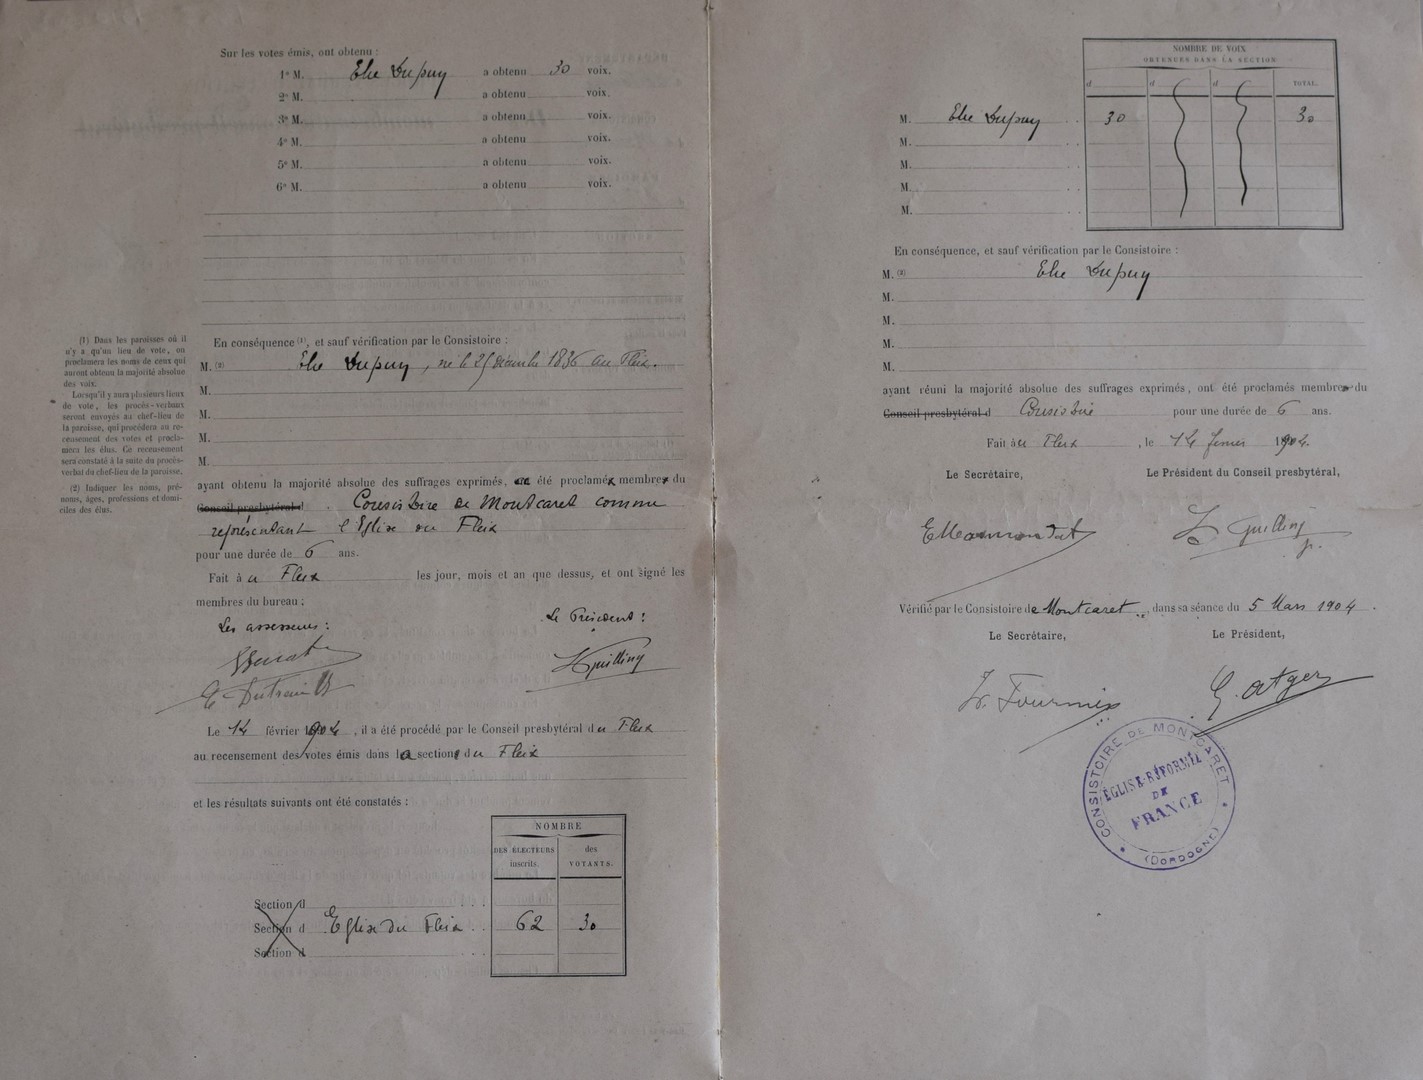 Sur les votes émis, ont obtenu :
1º M. Elie Dupuy a obtenu 30 voix.
2º M. a obtenu voix.
3º M. a obtenu voix.
4º M. a obtenu voix.
5º M. a obtenu voix.
6º M. a obtenu voix.
En conséquence (1), et sauf vérification par le Consistoire :
M. (2) Elie Dupuy, né le 25 décembre 1836 au Fleix.
M.
M.
M.
M.
ayant obtenu la majorité absolue des suffrages exprimés, été proclamé membre du
Conseil presbytéral d Consistoire de Montcaret comme
représentant l'Eglise du Fleix
pour une durée de 6 ans.
Fait à u Fleix les jour, mois et an que dessus, et ont signé les
membres du bureau :
Les assesseurs : Le Président :
Quilling
Le 14 février 1904, il a été procédé par le Conseil presbytéral du Fleix
au recensement des votes émis dans la section du Fleix
et les résultats suivants ont été constatés :
NOMBRE
DES ÉLECTEURS inscrits. des VOTANTS.
Section d
Section d Eglise du Fleix 62 30
Section d
(1) Dans les paroisses où il
n'y a qu'un lieu de vote, on
proclamera les noms de ceux qui
auront obtenu la majorité absolue
des voix.
Lorsqu'il y aura plusieurs lieux
de vote, les procès-verbaux
seront envoyés au chef-lieu de
la paroisse, qui procédera au re-
censement des votes et procla-
mera les élus. Ce recensement
sera constaté à la suite du procès-
verbal du chef-lieu de la paroisse.
(2) Indiquer les noms, pré-
noms, âges, professions et domi-
ciles des élus.
NOMBRE DE VOIX
OBTENUES DANS LA SECTION
d d d TOTAL.
M. Elie Dupuy 30 30
M.
M.
M.
M.
En conséquence, et sauf vérification par le Consistoire :
M. (2) Elie Dupuy
M.
M.
M.
M.
ayant réuni la majorité absolue des suffrages exprimés, ont été proclamés membres du
Conseil presbytéral d Consistoire pour une durée de 6 ans.
Fait à u Fleix, le 14 février 1904.
Le Secrétaire, Le Président du Conseil presbytéral,
Quilling
Vérifié par le Consistoire de Montcaret, dans sa séance du 5 Mars 1904.
Le Secrétaire, Le Président,
G. Atger
CONSISTOIRE DE MONTCARET
ÉGLISE RÉFORMÉE
DE
FRANCE
(DORDOGNE)